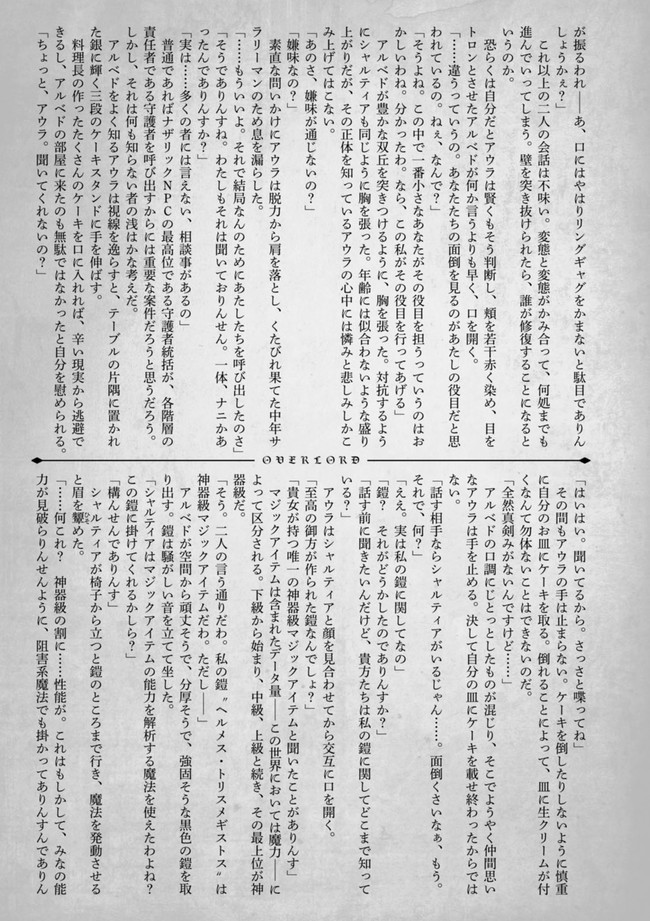 が振るわれ――あ、口にはやはりリングギャグをかまないと駄目でありん
しょうかぇ?」
これ以上の二人の会話は不味い。変態と変態がかみ合って、何処までも
進んでいってしまう。壁を突き抜けられたら、誰が修復することになると
いうのか。
恐らくは自分だとアウラは賢くもそう判断し、頬を若干赤く染め、目を
トロンとさせたアルベドが何か言うよりも早く、口を開く。
「……違うっていうの。あなたたちの面倒を見るのがあたしの役目だと思
われているの。ねぇ、なんで?」
「そうよね。この中で一番小さなあなたがその役目を担うっていうのはお
かしいわね。分かったわ。なら、この私がその役目を行ってあげる」
アルベドが豊かな双丘を突きつけるように、胸を張った。対抗するよう
にシャルティアも同じように胸を張った。年齢には似合わないような盛り
上がりだが、その正体を知っているアウラの心中には憐みと悲しみしかこ
み上げてはこない。
「あのさ、嫌味が通じないの?」
「嫌味なの?」
素直な問いかけにアウラは脱力から肩を落とし、くたびれ果てた中年サ
ラリーマンのため息を漏らした。
「……もういいよ。それで結局なんのためにあたしたちを呼び出したのさ」
「そうでありんすね。わたしもそれは聞いておりんせん。一体、ナニかあ
ったんでありんすか?」
「実は……多くの者には言えない、相談事があるの」
普通であればナザリックNPCの最高位である守護者統括が、各階層の
責任者である守護者を呼び出すからには重要な案件だろうと思うだろう。
しかし、それは何も知らない者の浅はかな考えだ。
アルベドをよく知るアウラは視線を逸らすと、テーブルの片隅に置かれ
た銀に輝く三段のケーキスタンドに手を伸ばす。
料理長の作ったたくさんのケーキを口に入れれば、辛い現実から逃避で
きるし、アルベドの部屋に来たのも無駄ではなかったと自分を慰められる。
「ちょっと、アウラ。聞いてくれないの?」
OVERLORD
「はいはい。聞いてるから。さっさと喋ってね」
その間もアウラの手は止まらない。ケーキを倒したりしないように慎重
に自分のお皿にケーキを取る。倒れることによって、皿に生クリームが付
くなんて勿体ないことはできないのだ。
「全然真剣みがないんですけど……」
アルベドの口調にじとっとしたものが混じり、そこでようやく仲間思い
なアウラは手を止める。決して自分の皿にケーキを載せ終わったからでは
ない。
「話す相手ならシャルティアがいるじゃん……。面倒くさいなぁ、もう。
それで、何?」
「ええ。実は私の鎧に関してなの」
「鎧? それがどうかしたのでありんすか?」
「話す前に聞きたいんだけど、貴方たちは私の鎧に関してどこまで知って
いる?」
アウラはシャルティアと顔を見合わせてから交互に口を開く。
「至高の御方が作られた鎧なんでしょ?」
「貴女が持つ唯一の神器級マジックアイテムと聞いたことがありんす」
マジックアイテムは含まれたデータ量――この世界においては魔力――に
よって区分される。下級から始まり、中級、上級と続き、その最上位が神
器級だ。
「そう。二人の言う通りだわ。私の鎧〝ヘルメス・トリスメギストス〟は
神器級マジックアイテムだわ。ただし――」
アルベドが空間から頑丈そうで、分厚そうで、強固そうな黒色の鎧を取
り出す。鎧は騒がしい音を立てて坐した。
「シャルティアはマジックアイテムの能力を解析する魔法を使えたわよね?
この鎧に掛けてくれるかしら?」
「構んせんでありんす」
シャルティアが椅子から立つと鎧のところまで行き、魔法を発動させる
と眉を顰めた。
「……何これ? 神器級の割に……性能が。これはもしかして、みなの能
力が見破らりんせんように、阻害系魔法でも掛かってありんすんでありん